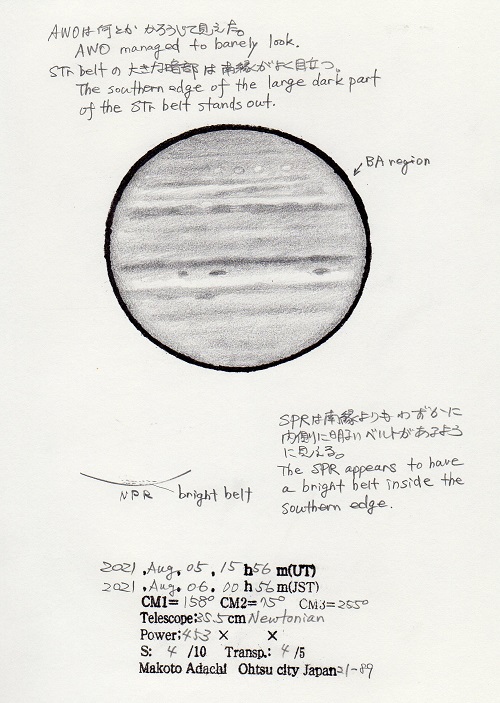 AWOは何とか かろうじて見えた。
AWO managed to barely look.
STr beltの大きな暗部は南縁がよく目立つ。
The southern edge of the large dark part
of the STr belt stands out.
BA region
SPRは南縁よりもわずかに
内側に明るいベルトがあるよう
に見える。
The SPR appears to have
a bright belt inside the
southern edge.
NPR bright belt
2021 .Aug. 05 . 15 h56 m(UT)
2021 .Aug. 06 . 00 h 56 m(JST)
CM1= 158° CM2= 75° CM3=255°
Telescope:35.5cm Newtonian
Power:453 × ×
S: 4 /10 Transp.: 4 /5
Makoto Adachi Ohtsu city Japan 21-89